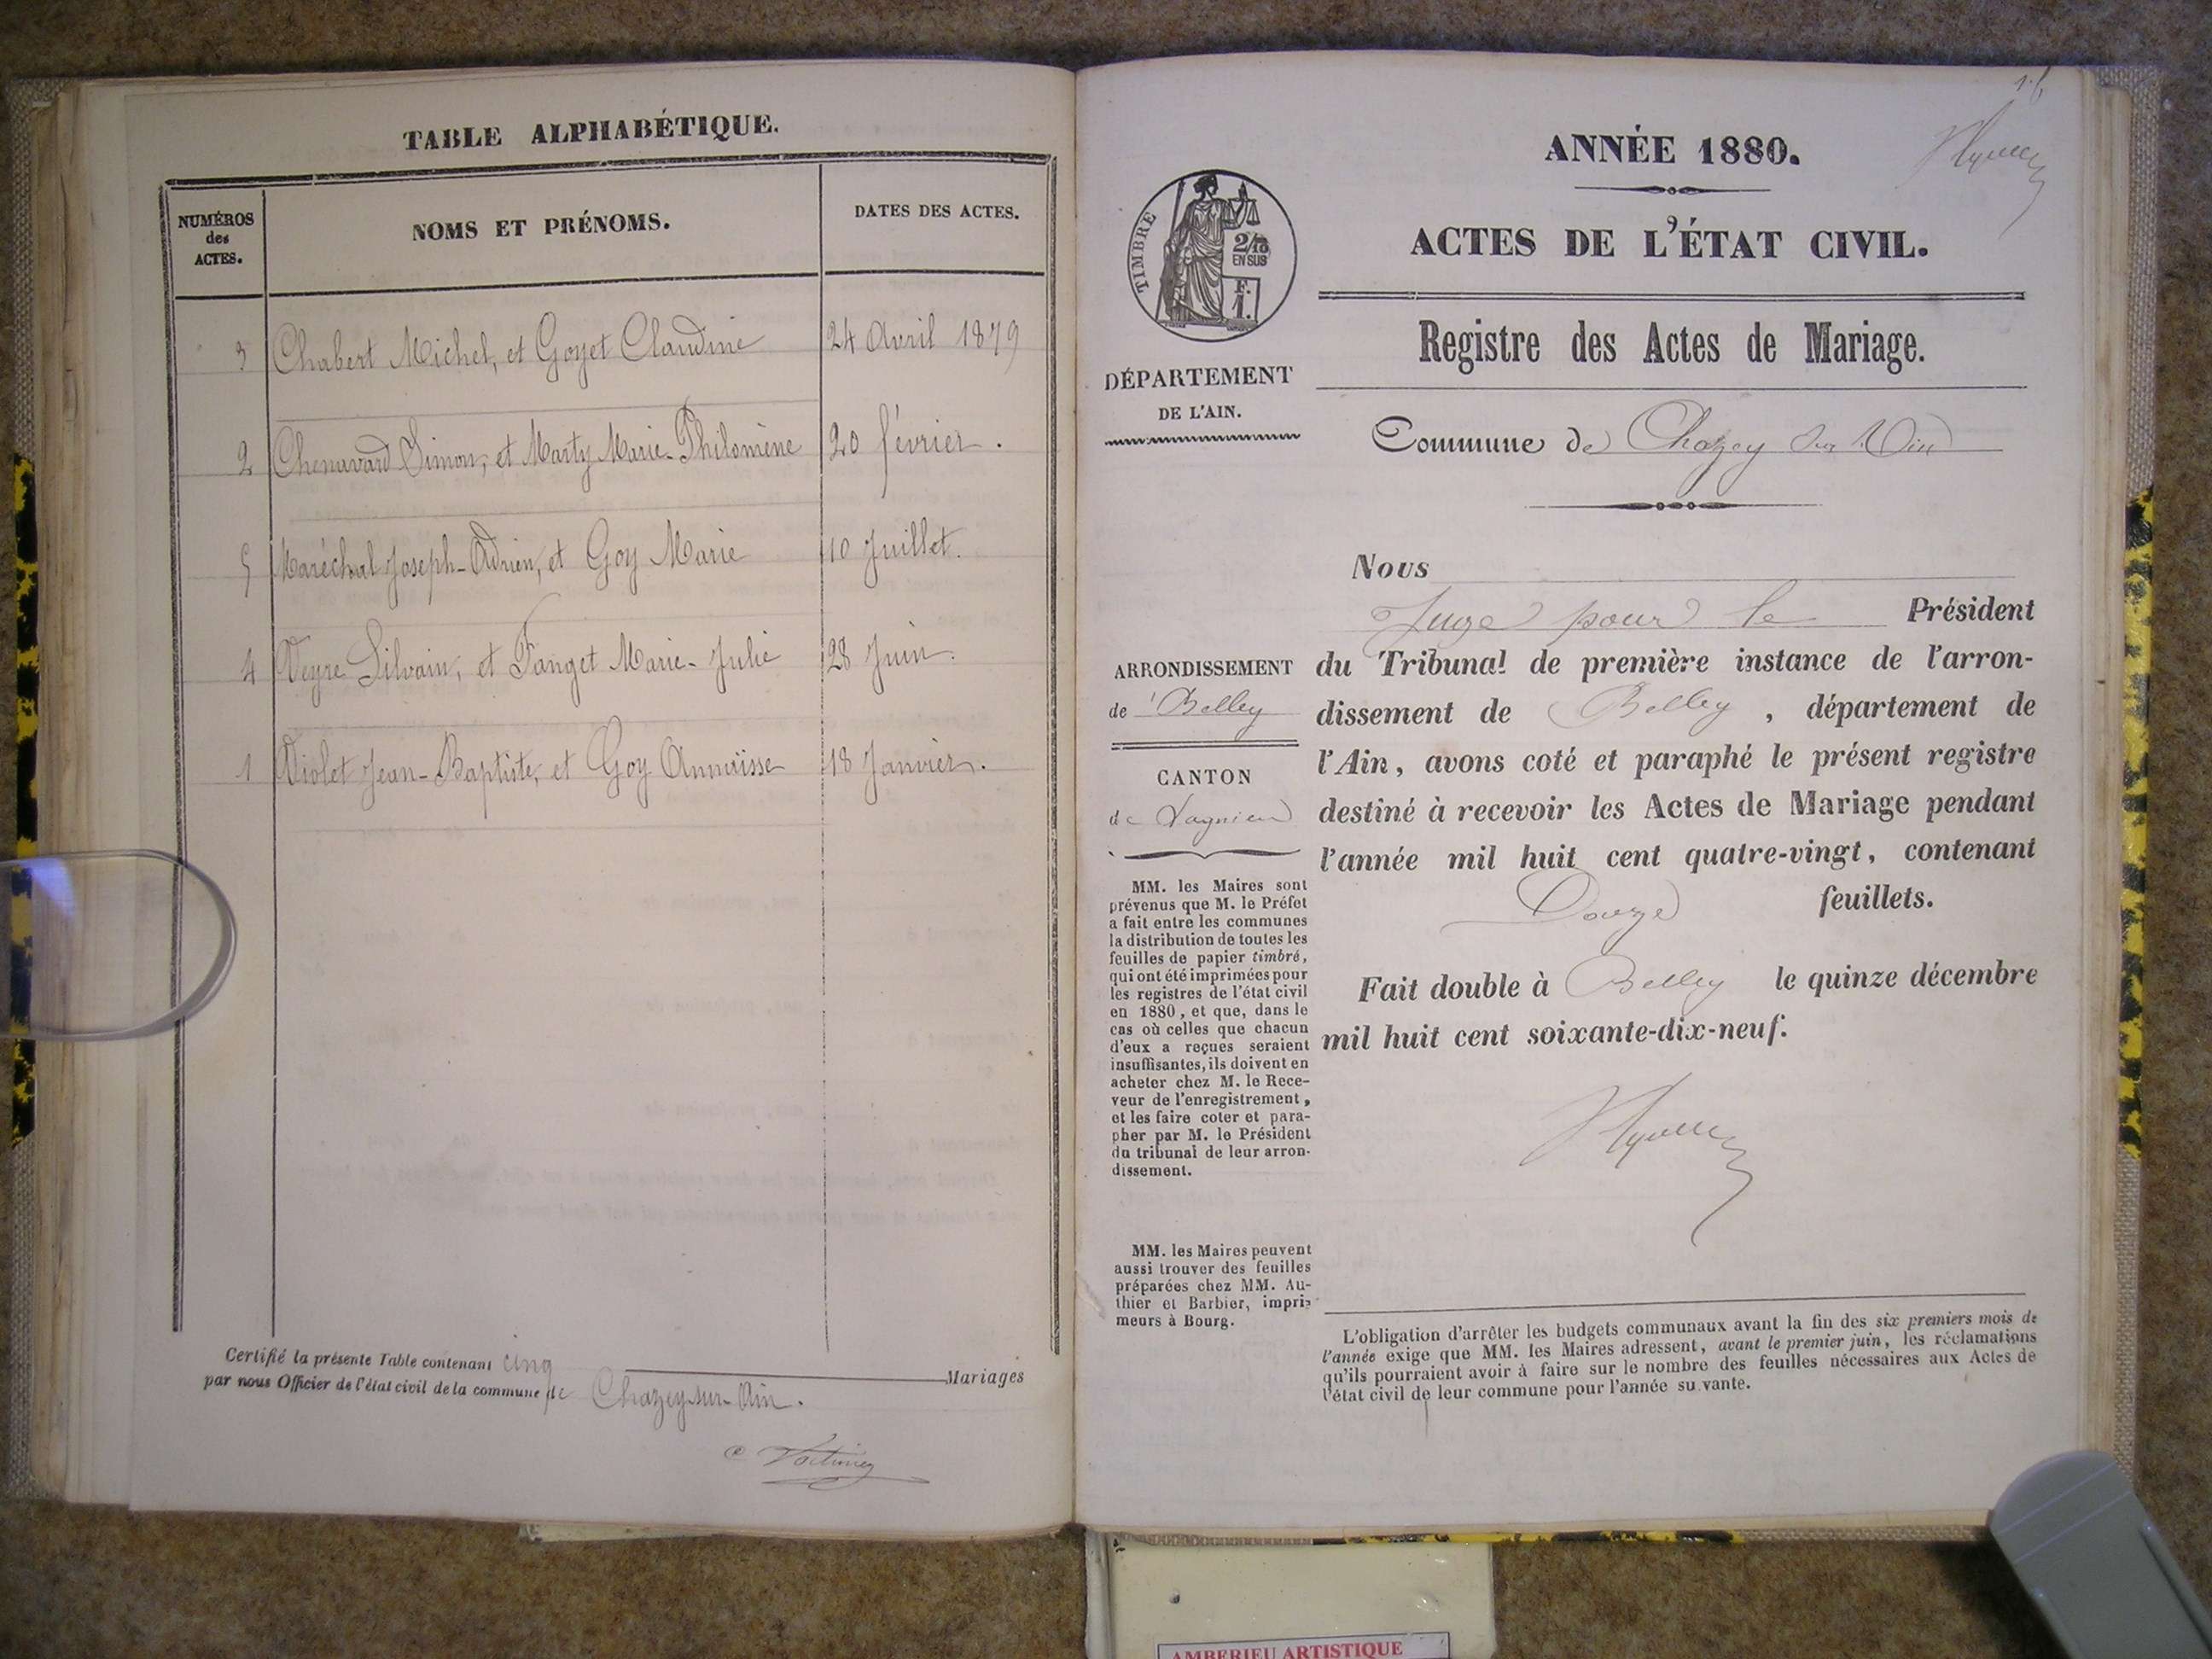 TABLE ALPHABÉTIQUE.
NUMÉROS
des
ACTES.
NOMS ET PRÉNOMS.
DATES DES ACTES.
3 Chabert Michel, et Goyet Claudine 24 Avril 1879
2 Chenavard Simon, et Marty Marie-Philomène 20 février.
5 Maréchal Joseph-Adrien, et Goy Marie 10 Juillet.
4 Veyre Silvain, et Fanget Marie-Julie 28 Juin.
1 Violet Jean-Baptiste, et Goy Annaïsse 18 Janvier.
Certifié la présente Table contenant cinq Mariages
par nous Officier de l'état civil de la commune de Chazey-sur-Ain.
ANNÉE 1880.
ACTES DE L'ÉTAT CIVIL.
TIMBRE
2/10
EN SUS
F.
1.
Registre des Actes de Mariage.
DÉPARTEMENT
DE L'AIN.
Commune de Chazey sur Ain
Nous
Juge pour le Président
du Tribunal de première instance de l'arron-
dissement de Belley, département de
l'Ain, avons coté et paraphé le présent registre
destiné à recevoir les Actes de Mariage pendant
l'année mil huit cent quatre-vingt, contenant
Douze feuillets.
Fait double à Belley le quinze décembre
mil huit cent soixante-dix-neuf.
ARRONDISSEMENT
de Belley
CANTON
de Lagnieu
MM. les Maires sont
prévenus que M. le Préfet
a fait entre les communes
la distribution de toutes les
feuilles de papier timbré,
qui ont été imprimées pour
les registres de l'état civil
en 1880, et que, dans le
cas où celles que chacun
d'eux a reçues seraient
insuffisantes, ils doivent en
acheter chez M. le Rece-
veur de l'enregistrement,
et les faire coter et para-
pher par M. le Président
du tribunal de leur arron-
dissement.
MM. les Maires peuvent
aussi trouver des feuilles
préparées chez MM. Au-
thier et Barbier, impri-
meurs à Bourg.
L'obligation d'arrêter les budgets communaux avant la fin des six premiers mois de
l'année exige que MM. les Maires adressent, avant le premier juin, les réclamations
qu'ils pourraient avoir à faire sur le nombre des feuilles nécessaires aux Actes de
l'état civil de leur commune pour l'année su vante.
AMBERIEU ARTISTIQUE